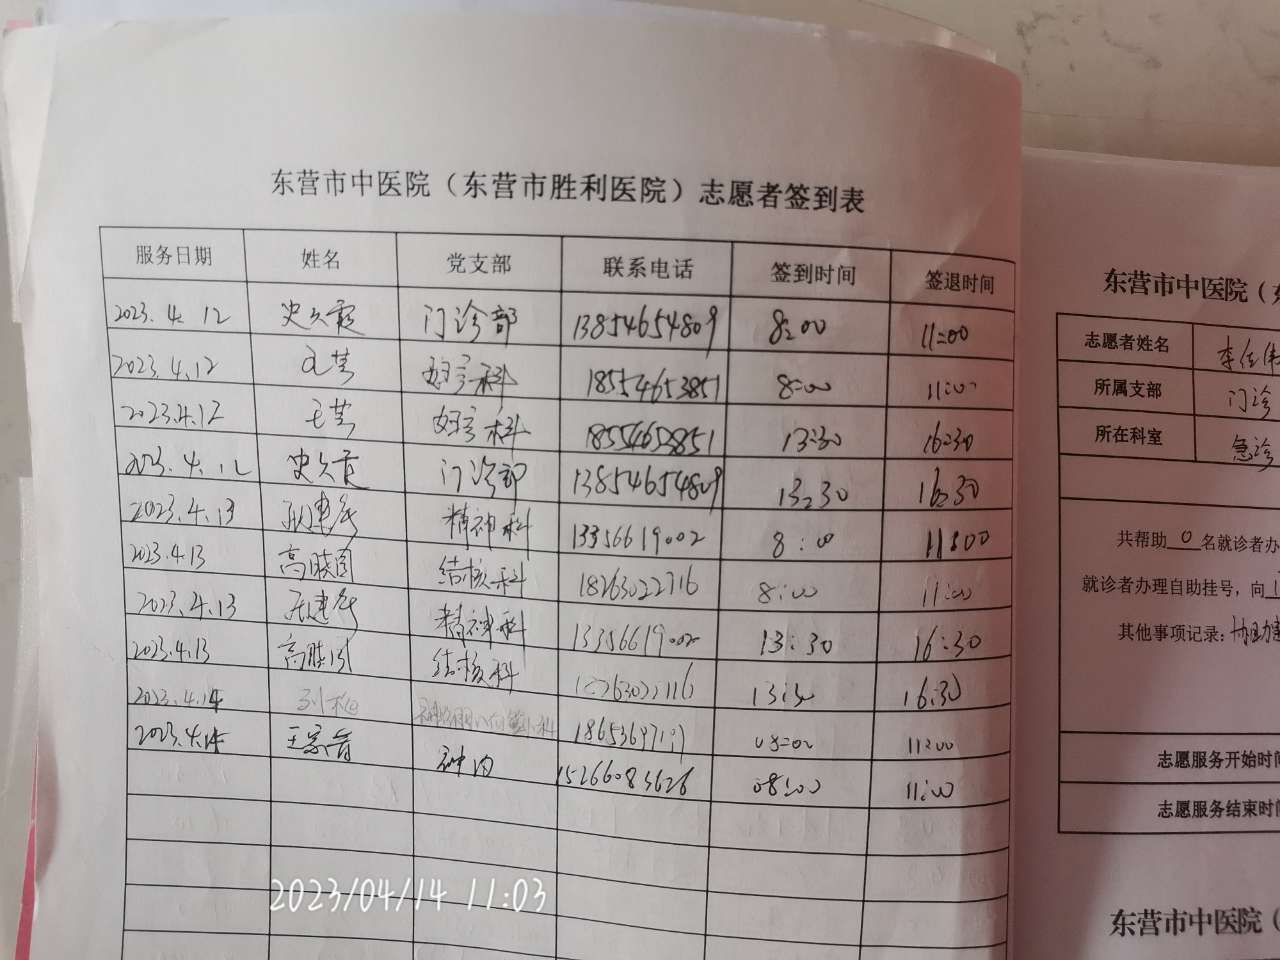 东营市中医院（东营市胜利医院）志愿者签到表
服务日期 姓名 党支部 联系电话 签到时间 签退时间
2023.4.12 史久霞 门诊部 13854654809 8:00 11:00
2023.4.12 妇产科 18554653851 8:00 11:00
2023.4.12 王芸 妇产科 13:30 16:30
2023.4.12 史久霞 门诊部 13854654809 13:30 16:30
2023.4.13 精神科 13356619002 8:00 11:00
2023.4.13 结核科 18263022716 8:00 11:00
2023.4.13 精神科 13356619002 13:30 16:30
2023.4.13 结核科 13:30 16:30
2023.4.14 08:00 11:00
2023.4.14 神内 15266083626 08:00 11:00
2023/04/14 11:03
东营市中医院（
志愿者姓名
所属支部 门诊
所在科室 急诊
共帮助 0 名就诊者办
就诊者办理自助挂号，向
其他事项记录：协助
志愿服务开始时间
志愿服务结束时间
东营市中医院（